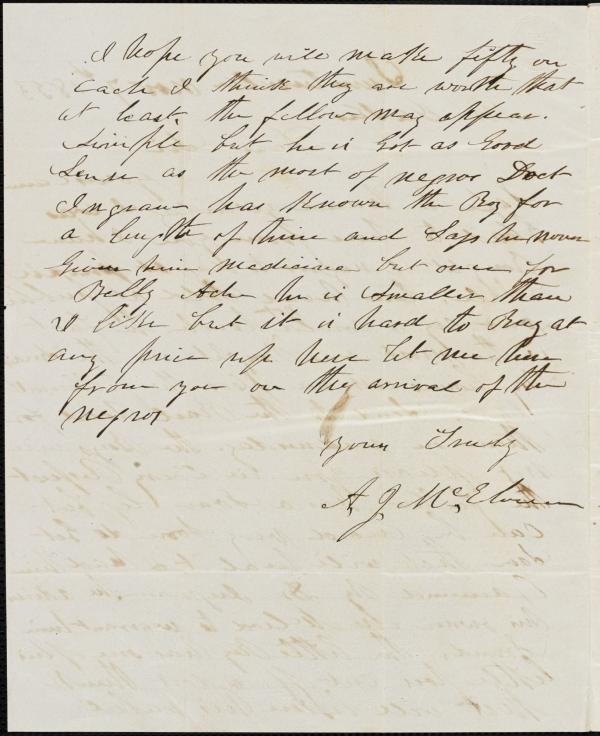 I hope you will make fifty on
Each I think they are worth that
at least. the fellow may appear.
Simple but he is Got as Good
Sense as the most of negros Doct
Ingram has Known the Boy for
a length of time and Says he never
Given him medicine but once for
Belly Ache he is Smaller than
I like but it is hard to Buy at
any price up here let me hear
from you on the arrival of the
negros
yours Truly
A. J. McElveen